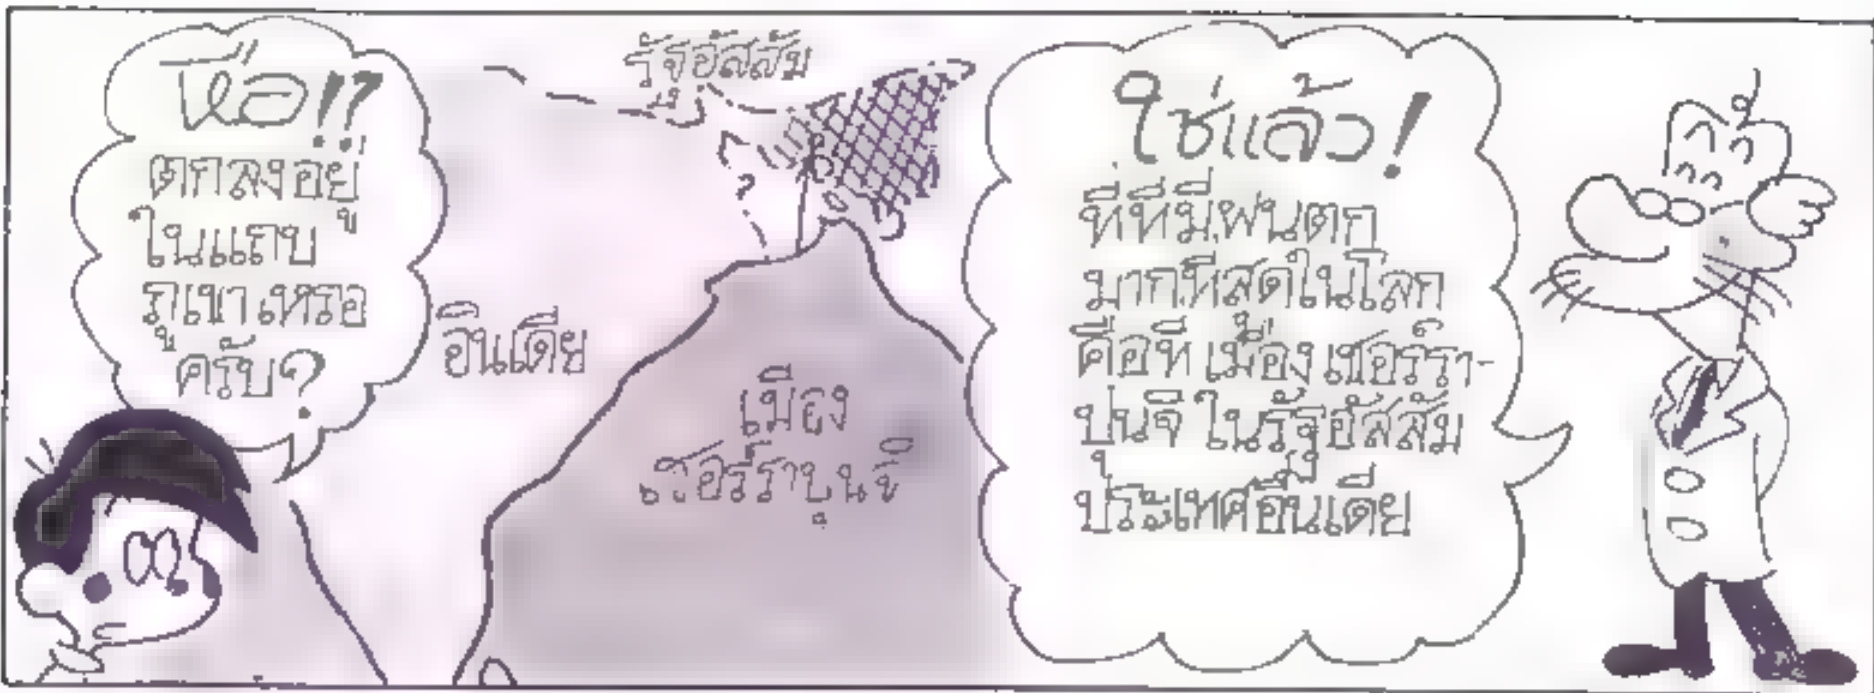 หือ!?
ตกลงอยู่
ในแถบ
ภูเขาเหรอ
ครับ?
รัฐอัสสัม
อินเดีย
เมือง
เชอร์ราปุนจิ
ใช่แล้ว!
ที่ที่มีฝนตก
มากที่สุดในโลก
คือที่เมืองเชอร์รา-
ปุนจิ ในรัฐอัสสัม
ประเทศอินเดีย